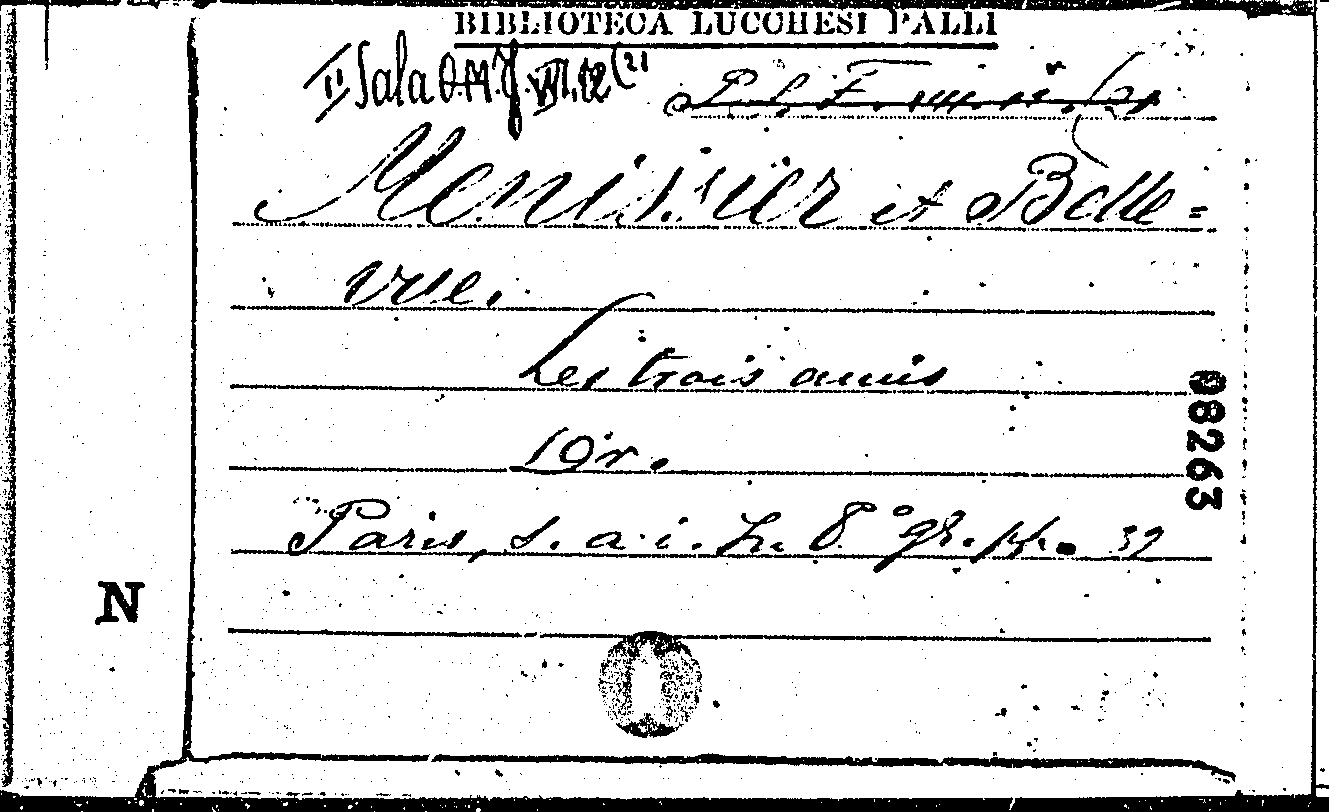 BIBLIOTECA LUCCHESI PALLI
IIª Sala O.M. VII.12 (21
Menissier et Belle=
vue.
Les trois amis
Dr.
Paris, s. a. i. L. 8° gr. pp. 32
08263
N